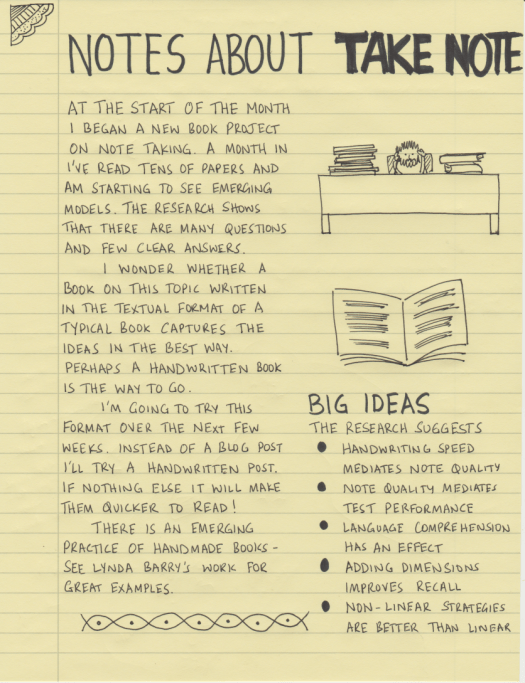 NOTES ABOUT TAKE NOTE
AT THE START OF THE MONTH
I BEGAN A NEW BOOK PROJECT
ON NOTE TAKING. A MONTH IN
I'VE READ TENS OF PAPERS AND
AM STARTING TO SEE EMERGING
MODELS. THE RESEARCH SHOWS
THAT THERE ARE MANY QUESTIONS
AND FEW CLEAR ANSWERS.
I WONDER WHETHER A
BOOK ON THIS TOPIC WRITTEN
IN THE TEXTUAL FORMAT OF A
TYPICAL BOOK CAPTURES THE
IDEAS IN THE BEST WAY.
PERHAPS A HANDWRITTEN BOOK
IS THE WAY TO GO.
I'M GOING TO TRY THIS
FORMAT OVER THE NEXT FEW
WEEKS. INSTEAD OF A BLOG POST
I'LL TRY A HANDWRITTEN POST.
IF NOTHING ELSE IT WILL MAKE
THEM QUICKER TO READ!
THERE IS AN EMERGING
PRACTICE OF HANDMADE BOOKS -
SEE LYNDA BARRY'S WORK FOR
GREAT EXAMPLES.
BIG IDEAS
THE RESEARCH SUGGESTS
● HANDWRITING SPEED
MEDIATES NOTE QUALITY
● NOTE QUALITY MEDIATES
TEST PERFORMANCE
● LANGUAGE COMPREHENSION
HAS AN EFFECT
● ADDING DIMENSIONS
IMPROVES RECALL
● NON-LINEAR STRATEGIES
ARE BETTER THAN LINEAR